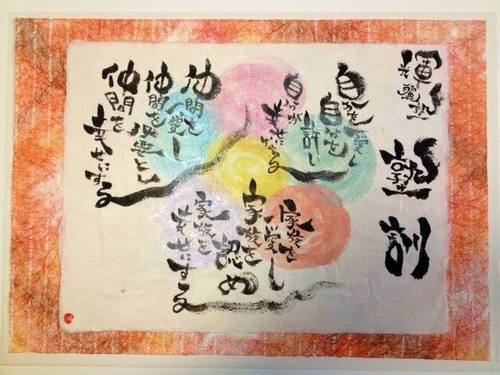 輝麗塾 塾訓
自分を愛し
自分を許し
自分が幸せになる
仲間を愛し
仲間を必要とし
仲間を幸せにする
家族を愛し
家族を認め
家族を幸せにする